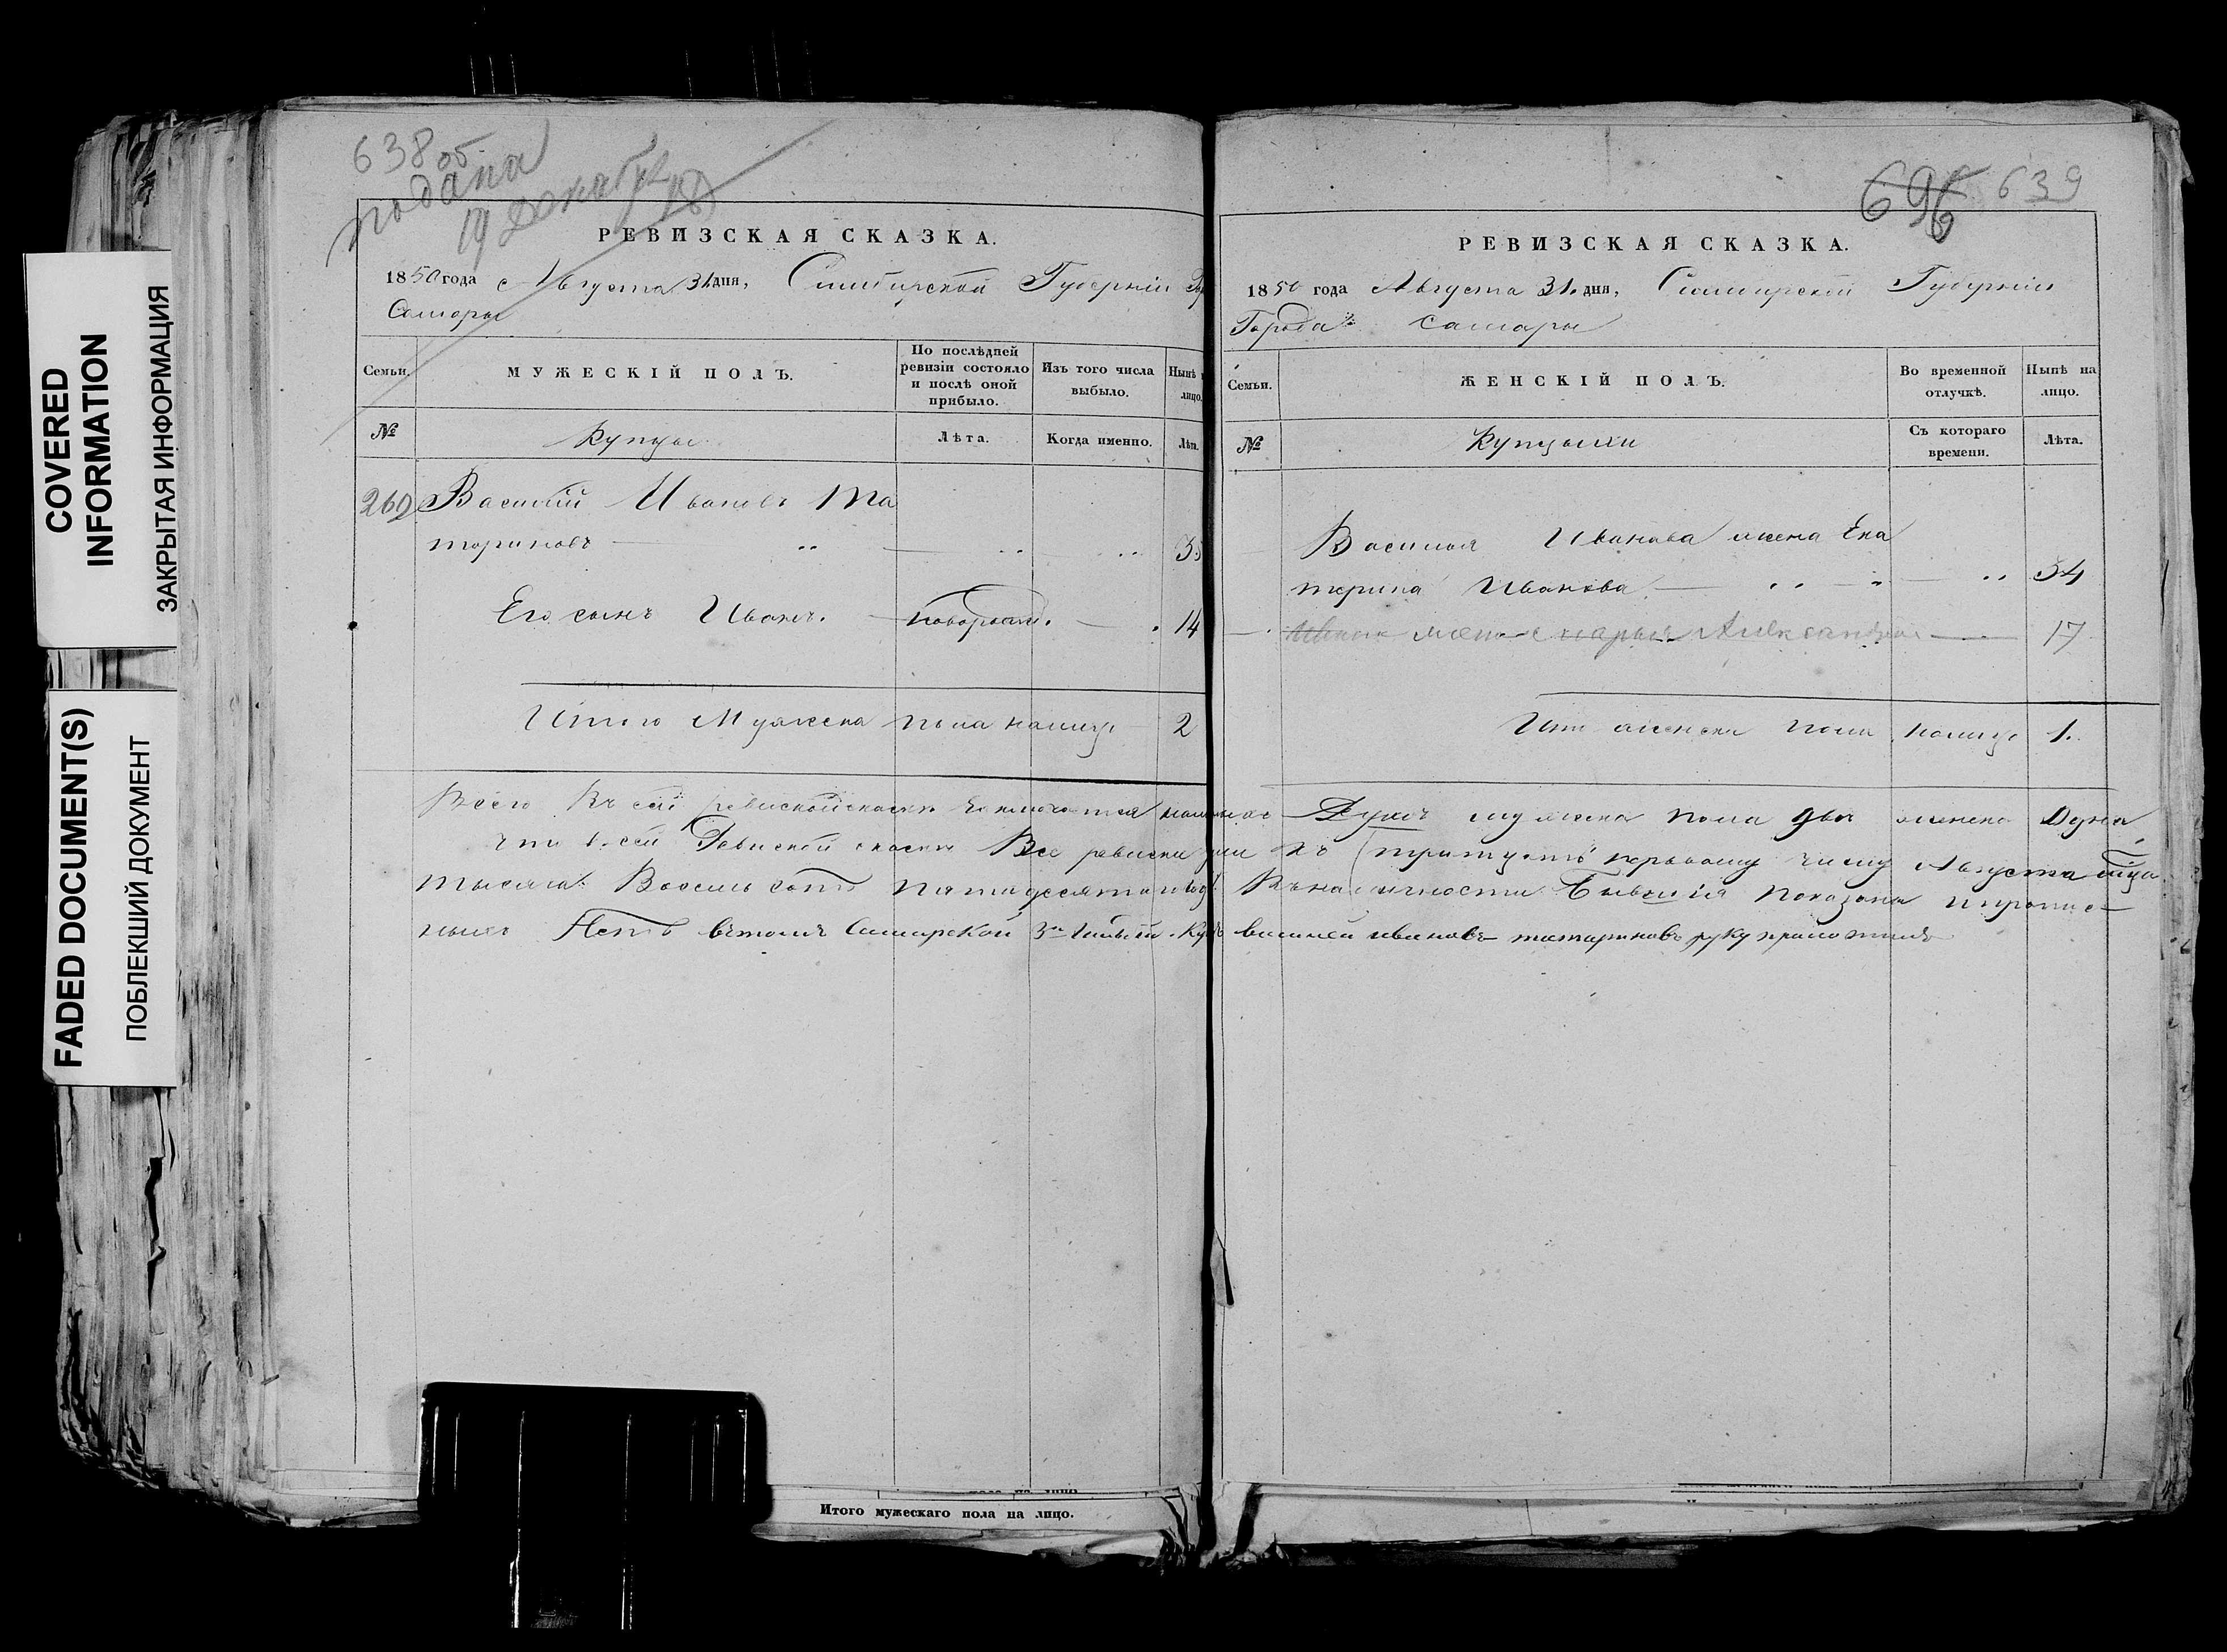 COVERED
INFORMATION
ЗАКРЫТАЯ ИНФОРМАЦИЯ
FADED DOCUMENT(S)
ПОБЛЕКШИЙ ДОКУМЕНТ
638 об
подана
19 Декабря
РЕВИЗСКАЯ СКАЗКА.
1850 года Августа 31 дня, Симбирской Губернии
Самары
Семьи. МУЖЕСКІЙ ПОЛЪ. По послѣдней ревизіи состояло и послѣ оной прибыло. Изъ того числа выбыло. Нынѣ лицо.
№ Купцы Лѣта. Когда именно. Лѣт.
262 Василий Ивановъ Та
тариновъ 35
Его сынъ Иванъ. новорожд. 14
Итого Мужеска пола налицо 2
696 639
РЕВИЗСКАЯ СКАЗКА.
1850 года Августа 31 дня, Симбирской Губернии
Города Самары
Семьи. ЖЕНСКІЙ ПОЛЪ. Во временной отлучкѣ. Нынѣ на лицо.
№ Купчихи Съ котораго времени. Лѣта.
Василья Иванова жена Ека
терина Иванова 34
Ивана жена Марья Александрова 17
Ито женска пола налицо 1.
Всего въ сей ревиской скаске заключается наличныхъ Душъ мужеска пола два женска Одна
что в сей Ревиской скаске Все ревиски души къ тритцать первому числу Августа мца
тысяча Восемь сотъ пятидесятаго года Въ наличности Бывшия показаны и пропис
ныхъ Нетъ въ томъ Самарской 3й Гильдии Купъ василей ивановъ татариновъ руку приложилъ
Итого мужескаго пола на лицо.